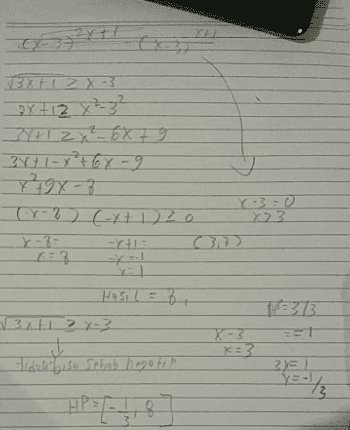 (x-3)^2x+1 = (x-3)^x+1
√3x+1 ≥ x-3
3x+1 ≥ x²-3²
3x+1 ≥ x²-6x+9
3x+1-x²+6x-9
x²+9x-8
(x-8) (-x+1) ≥ 0
x-3=0
x>3
x-8=
x=8
-x+1=
-x=-1
x=1
(3,8)
Hasil = 8,
√3x+1 ≥ x-3
tidak bisa sebab negatif
x-3
x=3
HP=3/3
==1
3x=1
x=-1/3
HP=[-1/3, 8]